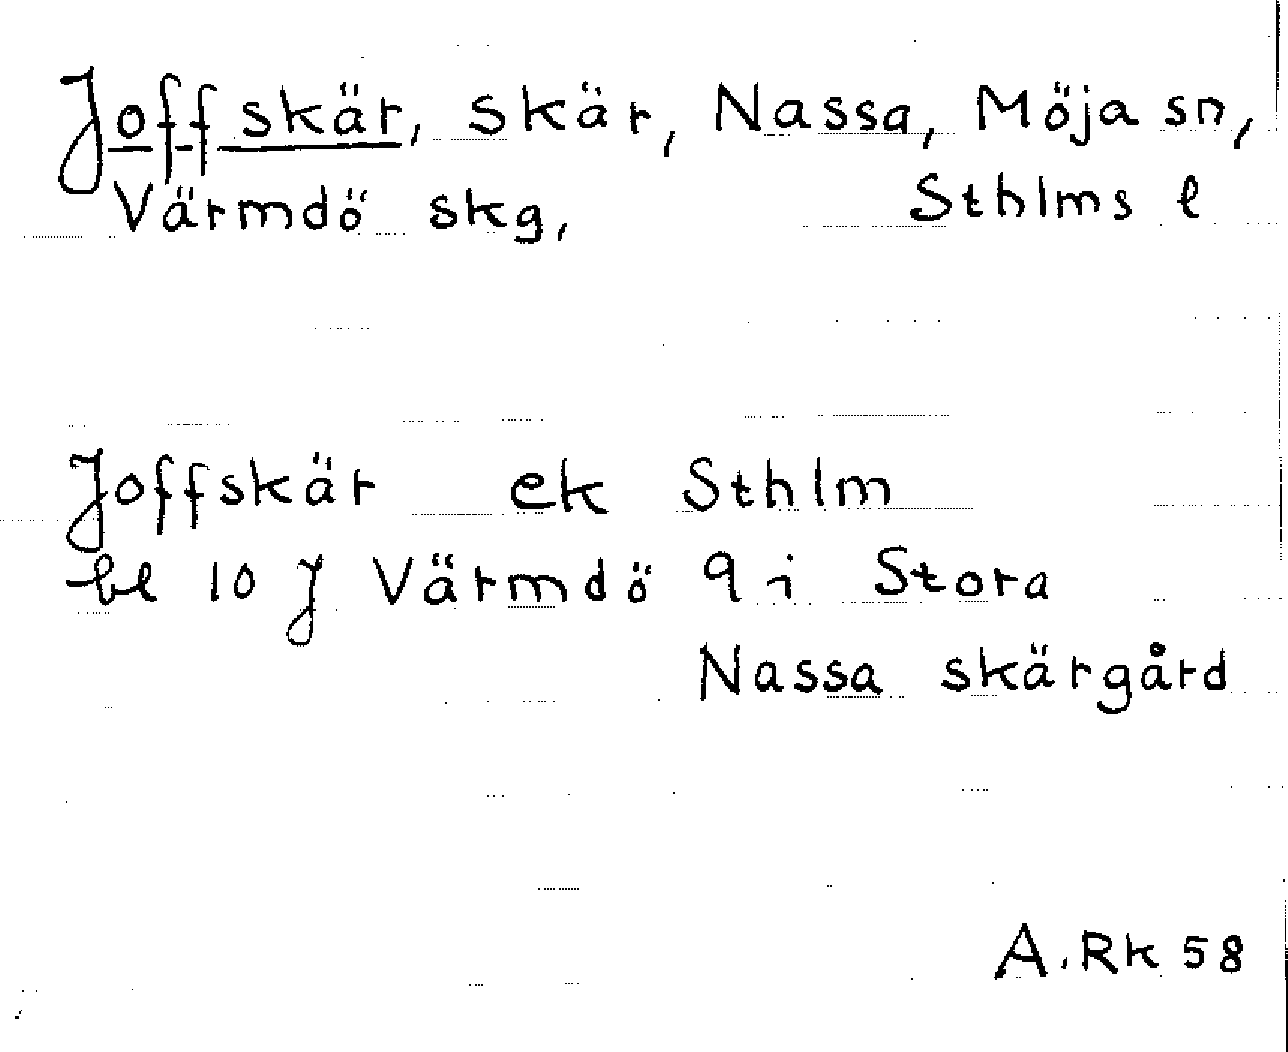 Joffskär, skär, Nassa, Möja sn,
Värmdö skg, Sthlms l
Joffskär ek Sthlm
bl 10 J Värmdö 9 i Stora
Nassa skärgård
A.Rk 58